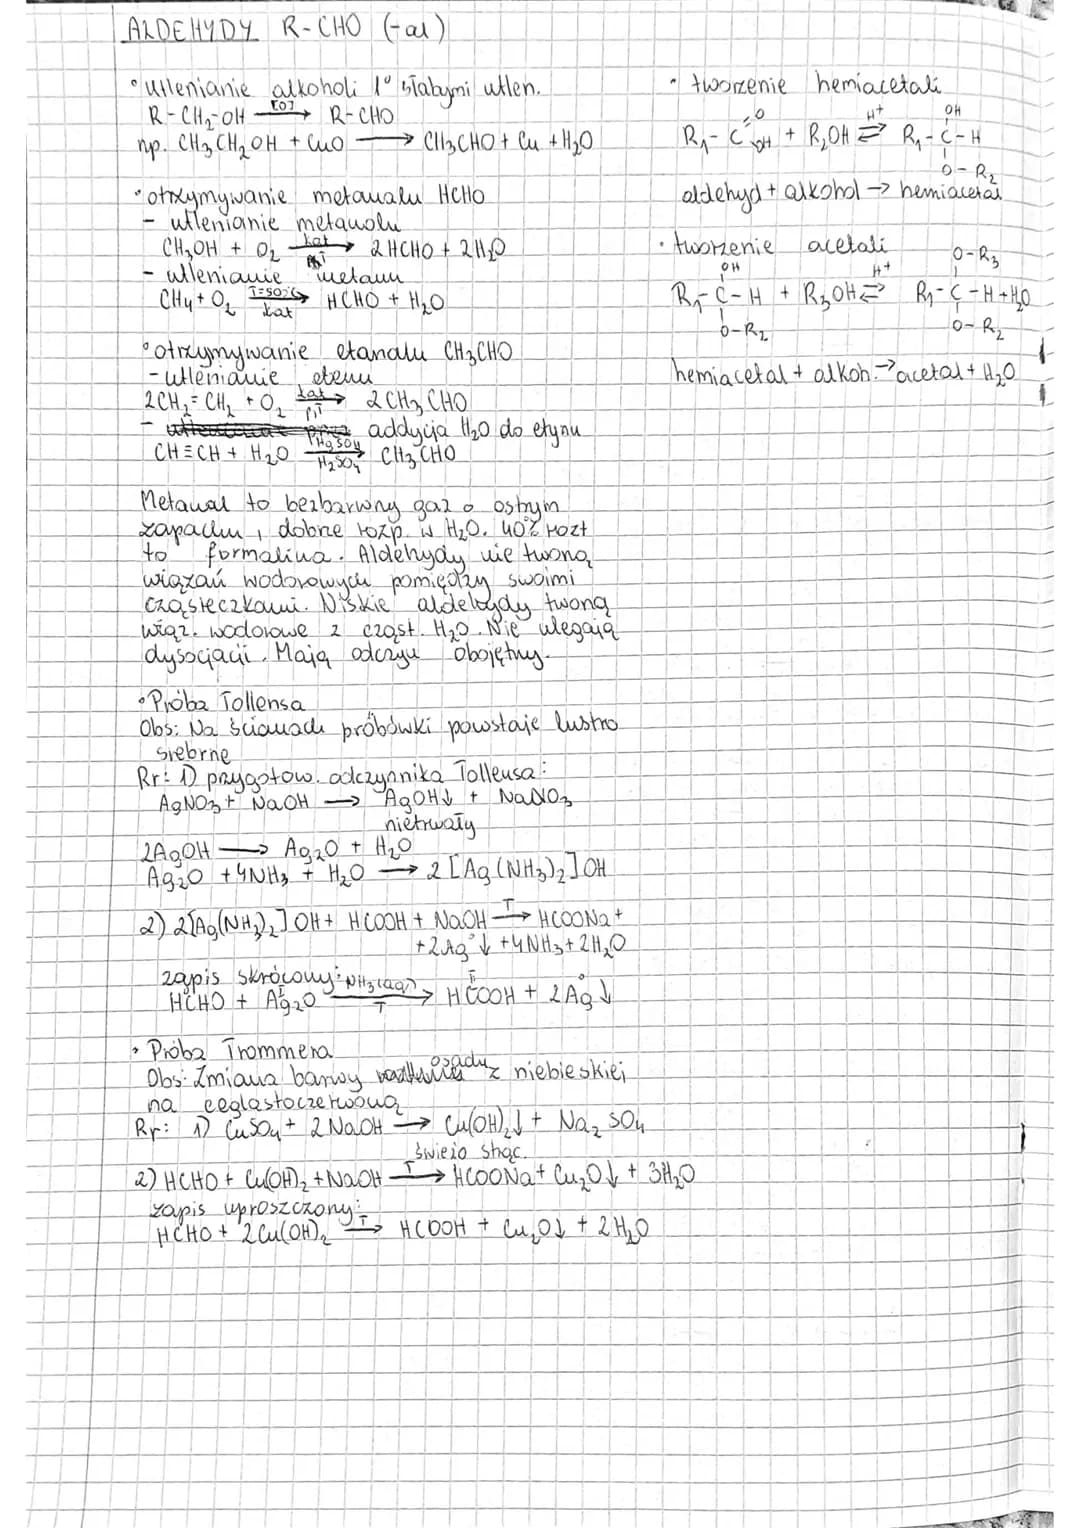 ALDEHYDY R-CHO (-al)
• Utlenianie alkoholi 1° słabymi utlen.
R-CH₂-OH —[O]→ R-CHO
np. CH₃CH₂OH + CuO ⟶ CH₃CHO + Cu + H₂O
• otrzymywanie metanalu HCHO
- utlenianie metanolu
CH₃OH + O₂ —kat→ 2HCHO + 2H₂O
- utlenianie metanu
CH₄ + O₂ —kat→ HCHO + H₂O
• otrzymywanie etanalu CH₃CHO
- utlenianie etenu
2CH₂=CH₂ + O₂ —kat p,T→ 2CH₃CHO
- addycja H₂O do etynu
CH≡CH + H₂O —HgSO₄ H₂SO₄→ CH₃CHO
Metanal to bezbarwny gaz o ostrym
zapachu, dobrze rozp. w H₂O. 40% rozt
to formalina. Aldehydy nie tworzą
wiązań wodorowych pomiędzy swoimi
cząsteczkami. Niskie aldehydy tworzą
wiąz. wodorowe z cząst. H₂O. Nie ulegają
dysocjacji. Mają odczyn obojętny.
• Próba Tollensa
Obs: Na ścianach próbówki powstaje lustro
srebrne
Rr: 1) przygotow. odczynnika Tollensa:
AgNO₃ + NaOH ⟶ AgOH↓ + NaNO₃
nietrwały
2AgOH ⟶ Ag₂O + H₂O
Ag₂O + 4NH₃ + H₂O ⟶ 2[Ag(NH₃)₂]OH
2) 2[Ag(NH₃)₂]OH + HCOOH + NaOH —T→ HCOONa +
+ 2Ag°↓ + 4NH₃ + 2H₂O
zapis skrócony:
HCHO + Ag₂O —NH₃(aq) T→ HCOOH + 2Ag↓
• Próba Trommera
Obs: Zmiana barwy osadu z niebieskiej
na ceglastoczerwoną
Rr: 1) CuSO₄ + 2NaOH ⟶ Cu(OH)₂↓ + Na₂SO₄
świeżo strąc.
2) HCHO + Cu(OH)₂ + NaOH —T→ HCOONa + Cu₂O↓ + 3H₂O
zapis uproszczony:
HCHO + 2Cu(OH)₂ —T→ HCOOH + Cu₂O↓ + 2H₂O
• tworzenie hemiacetali
O OH
R₁-C + R₂OH ⇌ H⁺ R₁-C-H
O-R₂
aldehyd + alkohol → hemiacetal
• tworzenie acetali
OH O-R₃
R₁-C-H + R₃OH ⇌ H⁺ R₁-C-H + H₂O
O-R₂ O-R₂
hemiacetal + alkoh. → acetal + H₂O